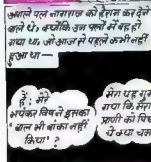 अगले पल नागराज को हैरान कर देने
वाले थे। क्योंकि उन पलों में वह हो
गया था, जो आज से पहले कभी नहीं
हुआ था—
हैं! मेरे
भयंकर विष ने इसका
बाल भी बांका नहीं
किया?
मेरा
गया कि मेरा
प्राणी को विष
ये क्या